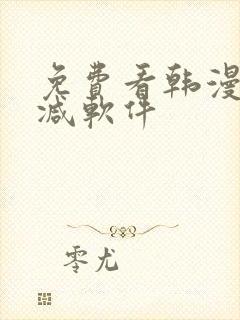 免費看韩漫
减軟件
零尤